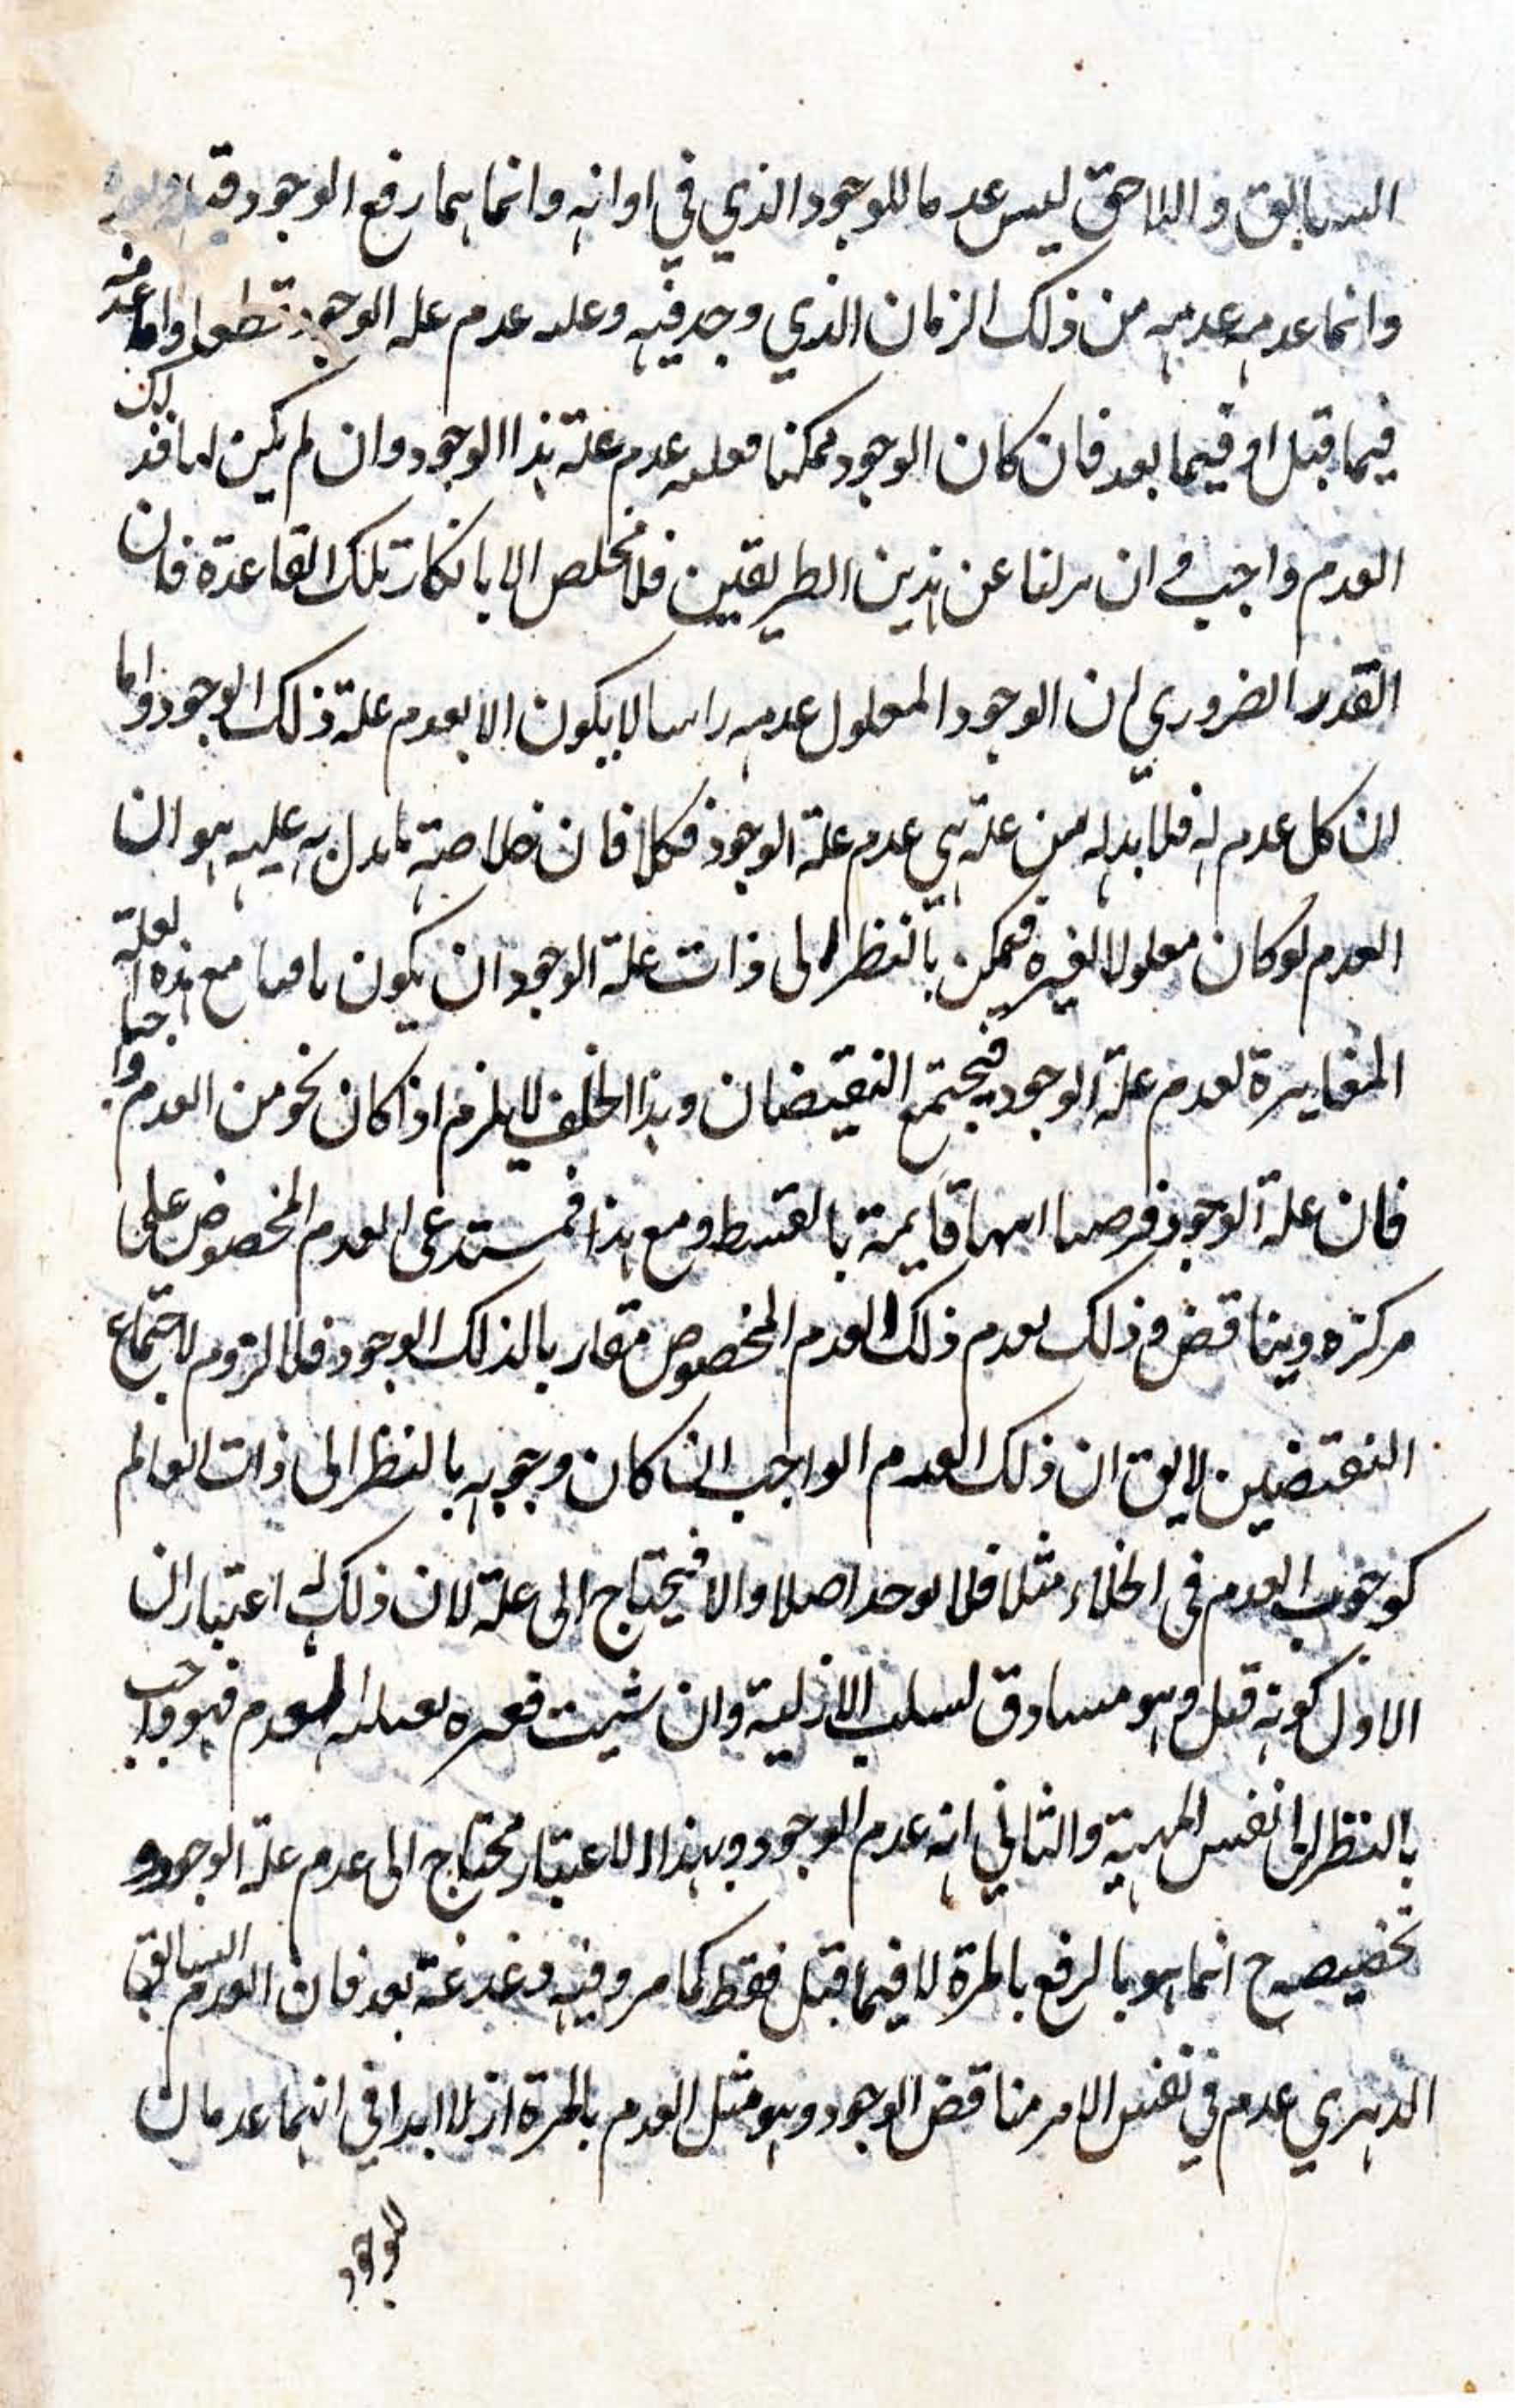 السابق واللاحق ليس عدما للوجود الذي في اوانه وانما هما رفع الوجود
وانما عدمه عدمه من ذلك الزمان الذي وجد فيه وعلته عدم علة الوجود قطعا واما عدمه
فيما قبل او فيما بعد فان كان الوجود ممكنا فعلته عدم علة هذا الوجود وان لم يكن لها فذلك
العدم واجب ان نزلنا عن هذين الطريقين فلا مخلص الا بانكار تلك القاعدة فان
القدر الضروري ان الوجود المعلول عدمه راسا لا يكون الا بعدم علة ذلك الوجود واما
ان كل عدم له فلا بد له من علة هي عدم علة الوجود فكلا فان خلاصة ما يدل به عليه هو ان
العدم لو كان معلولا لغيره فيمكن بالنظر الى ذات علة الوجود ان يكون مع هذه العلة
المغايرة لعدم علة الوجود فيجتمع النقيضان وهذا الخلف لا يلزم اذا كان نحو من العدم واجبا
فان علة الوجود فرضنا انها قايمة بالقسط ومع هذا فمستدعى العدم المخصوص على
مركزه ويناقض ذلك بعدم ذلك العدم المخصوص مقاربا لذلك الوجود فلا لزوم لاجتماع
النقيضين لا يق ان ذلك العدم الواجب ان كان وجوبه بالنظر الى ذات العالم
كوجوب العدم في الخلاء مثلا فلا يوجد اصلا والا فيحتاج الى علة لان ذلك له اعتباران
الاول كونه قبل وهو مساوق لسلب الازلية وان شيت فعبره العدم فهو واجب
بالنظر الى نفس المهية والثاني انه عدم الوجود وبهذا الاعتبار محتاج الى عدم علة الوجود و
تخصيصه ح انما هو بالرفع بالمرة لا فيما قبل فقط كما مر وفيه دغدغة بعد فان العدم السابق
الدهري عدم في نفس الامر مناقض الوجود وهو مثل العدم بالمرة ازلا ابدا في انهما عدمان
للوجود